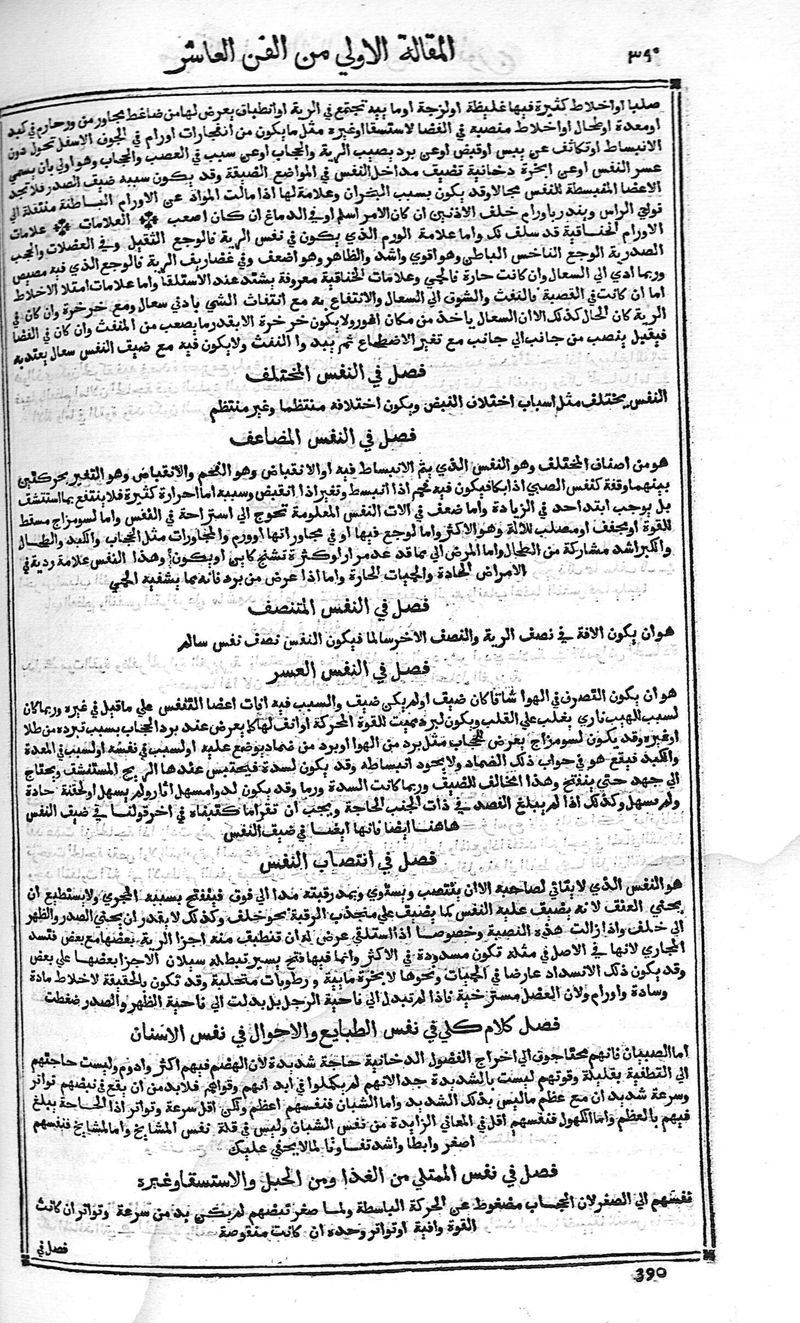 ٣٩٠
المقالة الاولي من الفن العاشر
صلبا او اخلاط كثيرة فيها غليظة اولزجة او ماييه تجتمع في الرية او انطباق يعرض لها من ضاغط يجاور من ورم حار في كبد
او معدة او طحال او اخلاط منصبة في الفضا لاستسقا او غيره مثل ما يكون من انفجارات اورام في الجون الاسفل تحول دون
الانبساط او تكاثف عن يبس او قبض او عن برد يصيب الرية والحجاب او عن سبب في العصب والحجاب وهو اولي بان يسمي
عسر النفس او عن ابخرة دخانية تضيف مداخل النفس في المواضع الضيقة وقد يكون سببه ضيف الصدر فلا تجد
الاعضا المنبسطة للنفس مجالا وقد يكون بسبب البحران وعلامة لها اذا مالت المواد عن الاورام الباطنة منتقلة الي
نواحي الراس وينذر باورام خلف الاذنين ان كان الامر اسلم او في الدماغ ان كان اصعب العلامات علامات
الاورام الخناقية قد سلف لك واما علامة الورم الذي يكون في نفس الرية فالوجع الثقيل وفي العضلات والحجب
الصدرية الوجع الناخس الباطني وهو اقوي واشد والظاهر وهو اضعف وفي غضاريف الرية فالوجع الذي فيه مصيص
وربما ادي الي السعال وان كانت حارة فالحمي وعلامات الخناقية معروفة يشتد عند الاستلقا واما علامات امتلا الاخلاط
اما ان كانت في القصبة فالنفث والشوق الي السعال والانتفاع به مع انتفاث الشي بادني سعال ومع خرخرة وان كان في
الرية كان الحال كذلك الا ان السعال ياخذ من مكان اغور ولا يكون خرخرة الا بقدر ما يصعب من المنفث وان كان في الفضا
فيقيل ينصب من جانب الي جانب مع تغير الاضطجاع ثم يبدوا النفث ولا يكون فيه مع ضيف النفس سعال يعتد به
فصل في النفس المختلف
النفس يختلف مثل اسباب اختلاف النبض ويكون اختلافه منتظما وغير منتظم
فصل في النفس المضاعف
هو من اصناف المختلف وهو النفس الذي يتم الانبساط فيه او الانقباض وهو الفحم والانقباض وهو التغير بحركتين
بينهما وقفة كنفس الصبي اذا بكا فيكون فيه فحم اذا انبسط وتغير اذا انقبض وسببه اما حرارة كثيرة فلا ينتفع بما استنشف
بل يوجب ابتدا حد في الزيادة واما ضعف في الات النفس المعلومة تحوج الي استراحة في النفس واما لسومزاج مسقط
للقوة او مجفف او مصلب للالة وهو الاكثر واما لوجع فيها او في مجاوراتها او ورم والمجاورات مثل الحجاب والكبد والطحال
والكبر اشد مشاركة من الطحال واما المرض الي بما قد عدمرارا وكثرة تشنج كاين او يكون وهذا النفس علامة ردية في
الامراض الحادة والحميات الحارة واما اذا عرض من برد فانه مما يشفيه الحمي
فصل في النفس المتنصف
هو ان يكون الافة في نصف الرية والنصف الاخر سالما فيكون النفس نصف نفس سالم
فصل في النفس العسر
هو ان يكون التصرف في الهوا شاقا كان ضيف او لم يكن ضيف والسبب فيه افات اعضا التنفس علي ما قيل في غيره وربما كان
لسبب لهيب ناري يغلب علي القلب ويكون لبرد مميت للقوة المحركة او انف لها كما يعرض عند برد الحجاب بسبب تبرده من طلا
او غيره وقد يكون لسومزاج يعرض للحجاب مثل برد من الهوا او برد من ضماد يوضع عليه او لسبب في نفسه او لسبب في المعدة
والكبد فيقع هو في جواب ذلك الضماد ولا يجود انبساطه وقد يكون لسدة فيحتبس عندها الريح المستنشف ويحتاج
الي جهد حتي ينفتح وهذا المخالف للضيف وربما كانت السدة وربما وقد يكون لدوا مسهل اثار ولم يسهل او لحقنة حادة
ولم تسهل وكذلك اذا لم يبلغ الفصد في ذات الجنب الحاجة ويجب ان تقرا ما كتبناه في اخر قولنا في ضيف النفس
هاهنا ايضا فانها ايضا في ضيف النفس
فصل في انتصاب النفس
هو النفس الذي لا يتاتي لصاحبه الا ان ينتصب ويستوي ويمد رقبته مدا الي فوق فينفتح بسببه المجري ولا يستطيع ان
يحني العنق لانه يضيف عليه النفس كما يضيف علي منجذب الرقبة نحو خلف وكذلك لا يقدر ان يحني الصدر والظهر
الي خلف واذا زالت هذه النصبة وخصوصا اذا استلقي عرض له ان تنطبف منه اجزا الرية بعضها مع بعض فتسد
المجاري لانها في الاصل في مثله تكون مسدودة في الاكثر وانما فيها فتح يسير تبطله سيلان الاجزا بعضها علي بعض
وقد يكون ذلك الانسداد عارضا في الحميات ونحوها لابخرة مايية ورطوبات متحلبة وقد تكون بالحقيقة لاخلاط مادة
وسادة واورام ولان العضل مسترخية فاذا لم تبدل الي ناحية الرجل بل بدلت الي ناحية الظهر والصدر ضغطت
فصل كلام كلي في نفس الطبايع والاحوال في نفس الاسنان
اما الصبيان فانهم محتاجون الي اخراج الفضول الدخانية حاجة شديدة لان الهضم فيهم اكثر وادوم وليست حاجتهم
الي التطفية بقليلة وقوتهم ليست بالشديدة جدا لانهم لم يكملوا في ابدانهم وقواهم فلا بد من ان يقع في نبضهم تواتر
وسرعة شديد ان مع عظم ما ليس بذلك الشديد واما الشبان فنفسهم اعظم ولكن اقل سرعة وتواتر اذا الحاجة يبلغ
فيهم بالعظم واما الكهول فنفسهم اقل في المعاني الزايدة من نفس الشبان وليس في قلة نفس المشايخ واما المشايخ فنفسهم
اصغر وابطا واشد تفاوتا لما لا يخفي عليك
فصل في نفس الممتلي من الغذا ومن الحبل والاستسقا وغيره
نفسهم الي الصغر لان الحجاب مضغوط عن الحركة الباسطة ولما صغر نبضهم لم يكن بد من سرعة وتواتر ان كانت
القوة وافية او تواتر وحده ان كانت منقوصة
فصل في
390